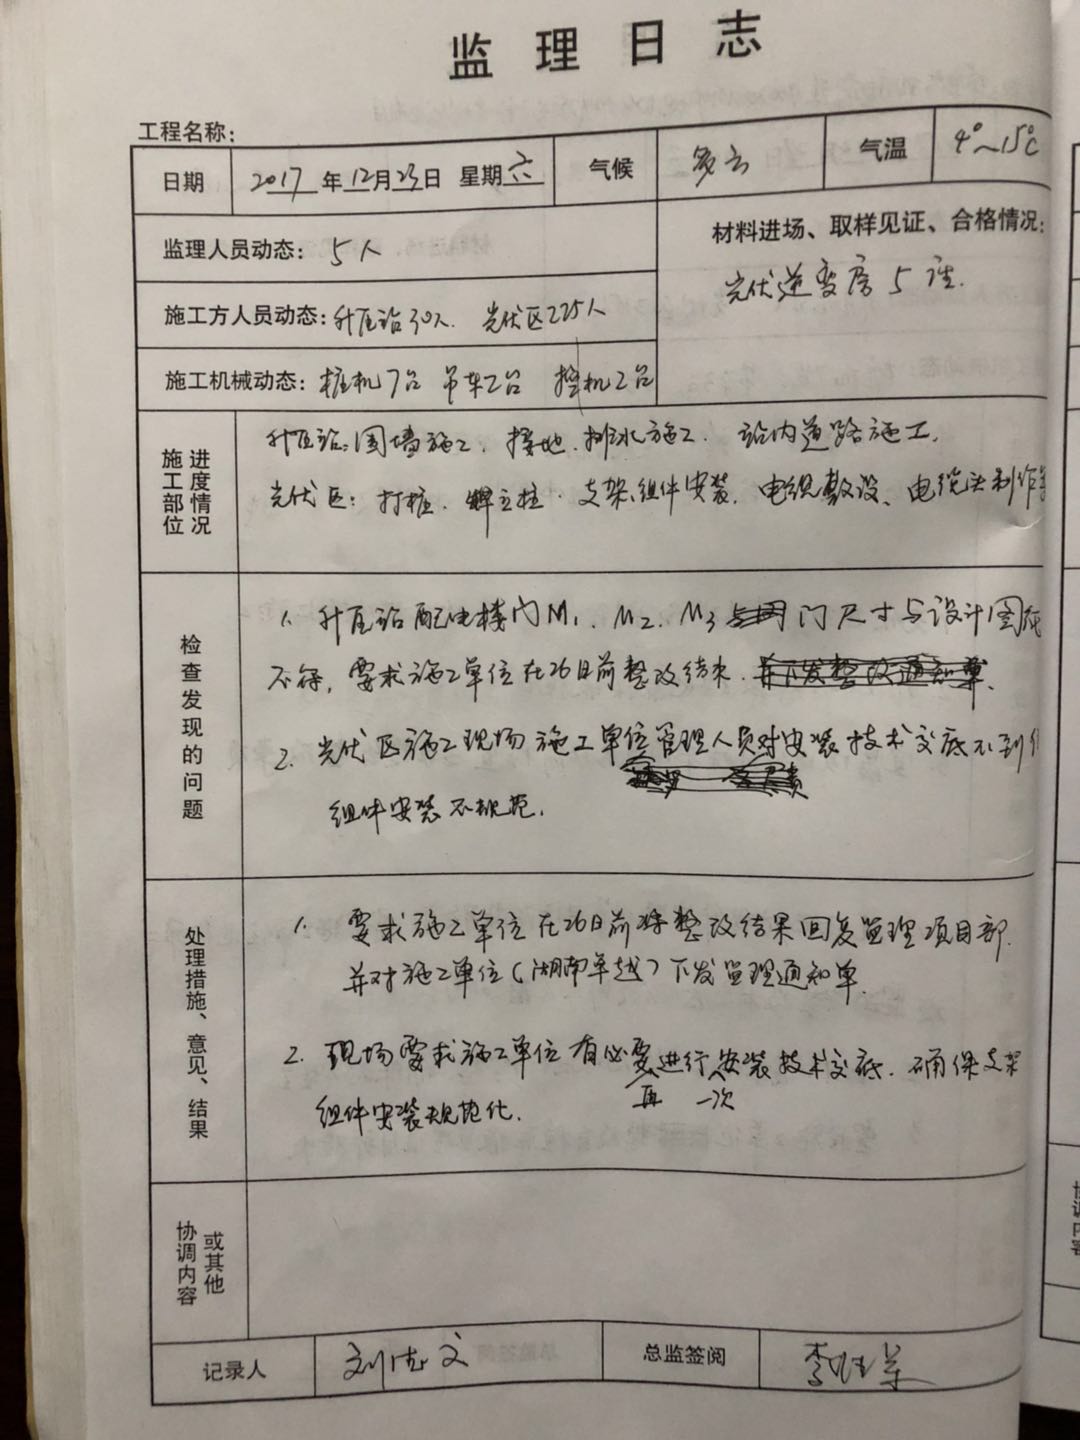 监理日志
工程名称:
日期 2017年12月23日 星期六 气候 多云 气温 4°~15℃
监理人员动态: 5人
材料进场、取样见证、合格情况:
光伏逆变房5座.
施工方人员动态: 升压站30人. 光伏区225人
施工机械动态: 桩机7台 吊车2台 挖机2台
施工部位
进度情况
升压站:围墙施工. 接地.排水施工. 站内道路施工.
光伏区: 打桩. 焊立柱. 支架、组件安装. 电缆敷设、电缆头制作
检查发现的问题
1. 升压站配电楼门M1. M2. M3 门尺寸与设计图纸
不符, 要求施工单位在26日前整改结束.
2. 光伏区施工现场施工单位管理人员对安装技术交底不到
组件安装不规范.
处理措施、意见、结果
1. 要求施工单位在26日前将整改结果回复监理项目部.
并对施工单位(湖南卓越)下发监理通知单.
2. 现场要求施工单位有必要再进行一次安装技术交底. 确保支架
组件安装规范化.
协调内容
或其他
记录人 刘 文 总监签阅 李
协调内容